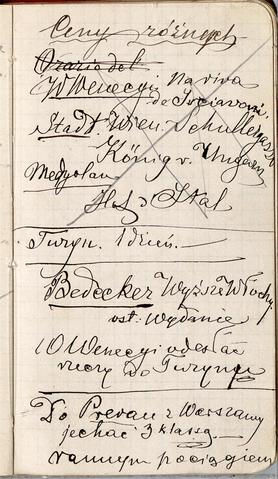 Ceny różnych
Orario del
W Wenecyi Na riva
de Sciavoni.
Stadt. Wien. Schullerstr 20
König v. Ungarn
Medyolan
Hof
Turyn. 1 dzień. —
Bedecker Wyższe Włochy
ost: Wydanie
W Wenecyi odesłać
rzeczy do Turynu
Do Prerau z Warszawy
jechać 3 klassą
rannym pociągiem